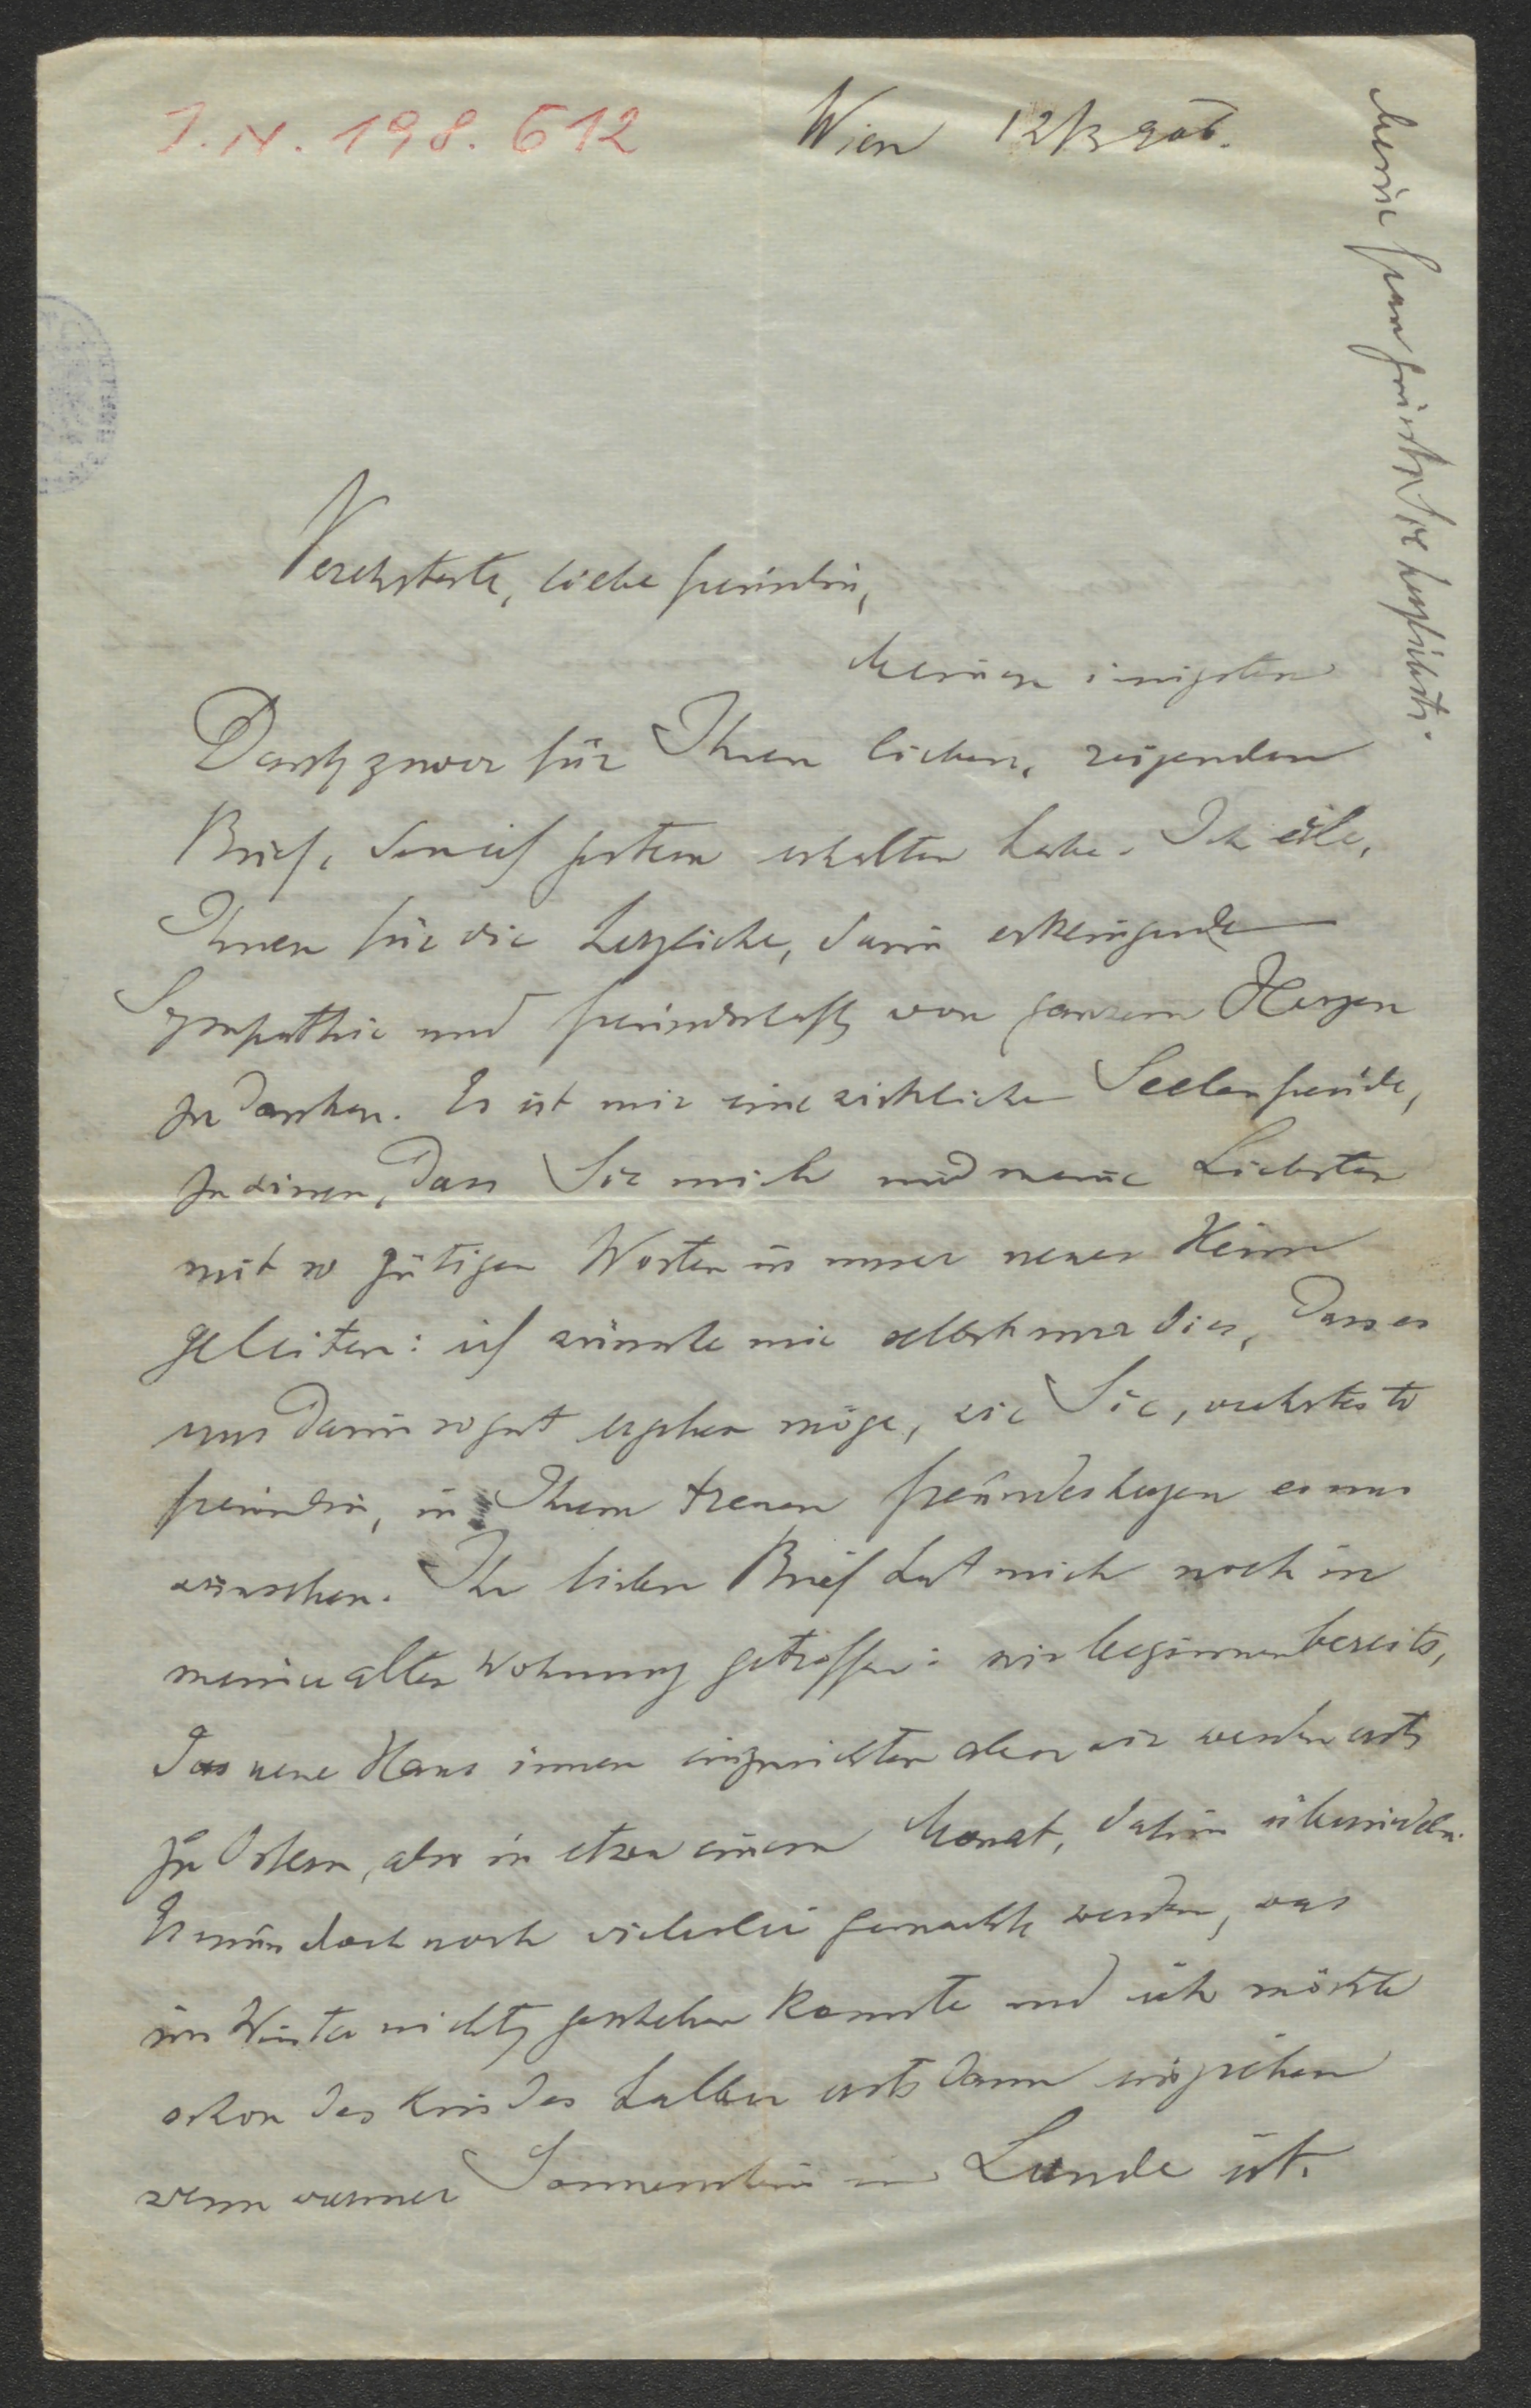 J.N. 198.612
Wien 12/3 906.
Verehrteste, liebe Freundin,
Meinen innigsten
Dank zuvor für Ihren lieben, reizenden
Brief, den ich gestern erhalten habe. Ich eile,
Ihnen für die herzliche, darin erklingende
Sympathie und Freundschaft von ganzem Herzen
zu danken. Es ist mir eine wirkliche Seelenfreude,
zu wissen, dass Sie mich und meine Liebsten
mit so gütigen Worten in unser neues Heim
geleiten: ich wünschte mir selbst nur dies, dass es
uns darin so gut ergehen möge, wie Sie, verehrteste
Freundin, in Ihrem treuen Freundesherzen es uns
wünschen. Ihr lieber Brief hat mich noch in
meiner alten Wohnung getroffen: wir beginnen bereits,
das neue Haus innen einzurichten aber wir werden erst
zu Ostern, also in etwa einem Monat, dahin übersiedeln.
Es muss doch noch vielerlei gemacht werden, was
im Winter nicht geschehen konnte und ich möchte
schon des Kindes halber erst dann einziehen
wenn warmer Sonnenschein im Lande ist.
Meine Frau grüsst Sie herzlichst.